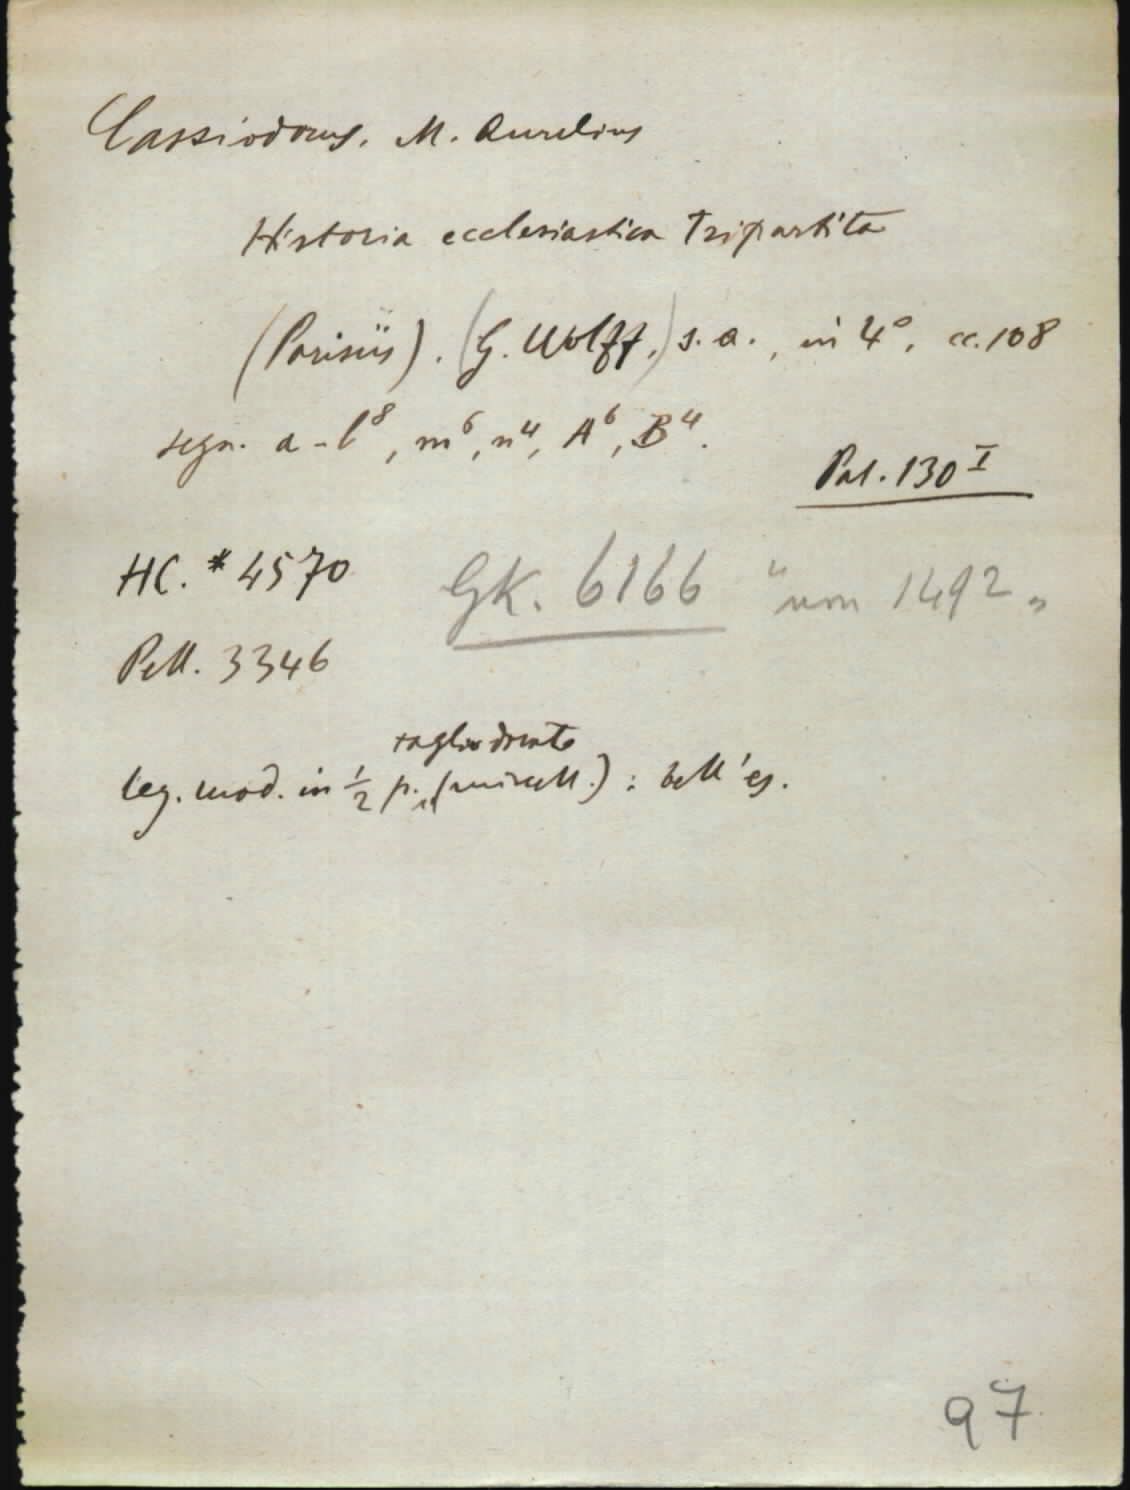 Cassiodorus. M. Aurelius
Historia ecclesiastica Tripartita
(Parisiis). (G. Wolff,) s. a., in 4°, cc. 108
segn. a-l⁸, m⁶, n⁴, A⁶, B⁴.
Pal. 130 I
HC. * 4570
GK. 6166 "um 1492"
Pell. 3346
taglio dorato
leg. mod. in ½ p. (miscell.) : bell'es.
97